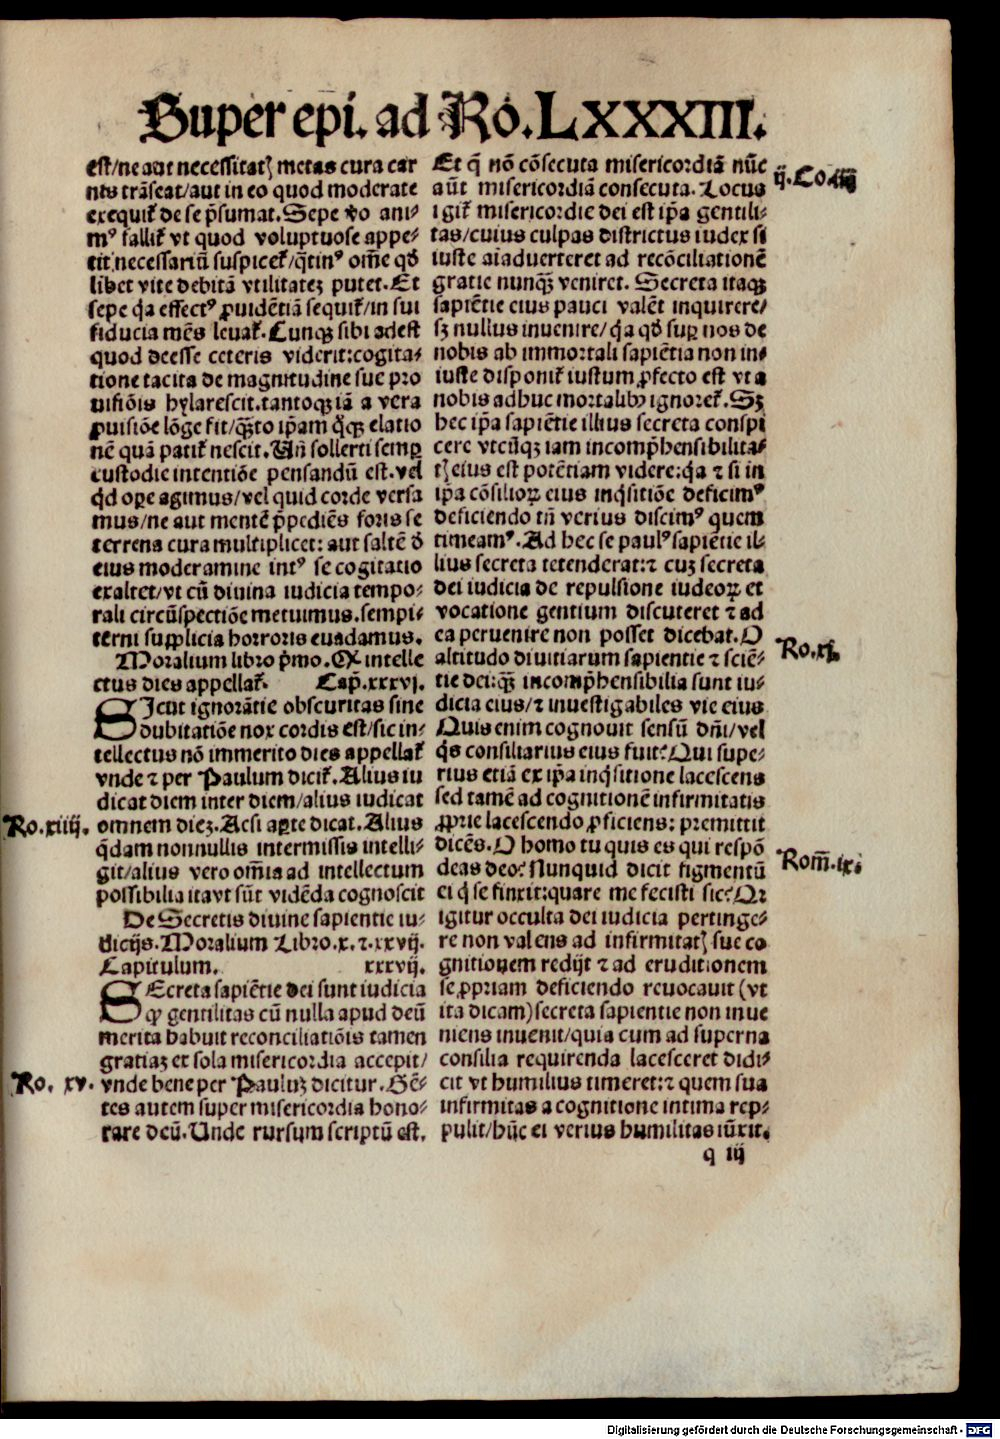 Super epi. ad Ro. LXXXIII.
est/ne aut necessitatꝭ metas cura car
nis trāseat/aut in eo quod moderate
exequit᷑ de se p̄sumat. Sepe ꝟo ani⸗
mꝰ fallit᷑ vt quod voluptuose appe⸗
tit necessariū suspicet᷑/q̄tinꝰ om̄e qđ
libet vite debitā vtilitateꝫ putet. Et
sepe q̇a effectꝰ ꝓuidētiā sequit᷑/in sui
fiducia mēs leuat᷑. Cunqꝫ sibi adest
quod deesse ceteris viderit: cogita⸗
tione tacita de magnitudine sue pro
uisiōis hylarescit. tantoqꝫ iā a vera
ꝓuisiōe lōge fit/q̄ꝫto ip̄am q̇qꝫ elatio
nē quā patit᷑ nescit. Un̄ sollerti semꝑ
custodie intentiōe pensandū est. vel
qd̓ oꝑe agimus/vel quid corde versa
mus/ne aut mentē p̄pediēs foris se
terrena cura multiplicet: aut saltē ð
eius moderamine intꝰ se cogitatio
exaltet/vt cū diuina iudicia tempo⸗
rali circūspectiōe metuimus. sempi⸗
terni supplicia horroris euadamus.
Moralium libro p̄mo. Ex intelle
ctus dies appellat᷑. Cap̄. xxxvj.
SIcut ignorātie obscuritas sine
dubitatiōe nox cordis est/sic in⸗
tellectus nō immerito dies appellat᷑
vnde ⁊ per Paulum dicit᷑. Alius iu
dicat diem inter diem/alius iudicat
Ro. xiiij.
omnem dieꝫ. Acsi aꝑte dicat. Alius
q̇dam nonnullis intermissis intelli⸗
git/alius vero om̄ia ad intellectum
possibilia itavt sūt vidēda cognoscit
De Secretis diuine sapientie iu⸗
dicijs. Moralium Libro. x. ⁊. xxvij.
Capitulum. xxxvij.
SEcreta sapiētie dei sunt iudicia
qꝛ gentilitas cū nulla apud deū
merita habuit reconciliatiōis tamen
gratiaꝫ et sola misericordia accepit/
Ro. xv.
vnde bene per Pauluꝫ dicitur. Gē⸗
tes autem super misericordia hono⸗
rare deū. Unde rursum scriptū est.
Et q̄ nō cōsecuta misericordiā nūc
ij. Co. iiij
aūt misericordiā consecuta. Locus
igit᷑ misericordie dei est ip̄a gentili⸗
tas/cuius culpas districtus iudex si
iuste aīaduerteret ad recōciliationē
gratie nunq̄ꝫ veniret. Secreta itaqꝫ
sapiētie eius pauci valēt inquirere/
sꝫ nullus inuenire/q̇a qđ suꝑ nos de
nobis ab immortali sapiētia non in⸗
iuste disponit᷑ iustum ꝓfecto est vt a
nobis adhuc mortalibꝰ ignoret᷑. Sꝫ
hec ip̄a sapiētie illius secreta conspi
cere vtcūqꝫ iam incomp̄hensibilita⸗
tꝭ eius est potētiam videre: q̇a ⁊ si in
ip̄a cōsilioꝝ eius inq̇sitiōe deficimꝰ
deficiendo tn̄ verius discimꝰ quem
timeamꝰ. Ad hec se paulꝰ sapiētie il⸗
lius secreta tetenderat: ⁊ cuꝫ secreta
dei iudicia de repulsione iudeoꝝ et
vocatione gentium discuteret ⁊ ad
ea peruenire non posset dicebat. O
Ro. xj.
altitudo diuitiarum sapientie ⁊ sciē⸗
tie dei: q̄ꝫ incomp̄hensibilia sunt iu⸗
dicia eius/⁊ inuestigabiles vie eius
Quis enim cognouit sensū dn̄i/vel
q̇s consiliarius eius fuit? Qui supe⸗
rius etiā ex ip̄a inq̇sitione lacescens
sed tamē ad cognitionē infirmitatis
ꝓprie lacescendo ꝓficiens: premittit
dicēs. O homo tu quis es qui respō
Rom̄. ix.
deas deo? Nunquid dicit figmentū
ei q̇ se finxit: quare me fecisti sic? Qꝛ
igitur occulta dei iudicia pertinge⸗
re non valens ad infirmitatꝭ sue co
gnitionem redijt ⁊ ad eruditionem
se ꝓpriam deficiendo reuocauit (vt
ita dicam) secreta sapientie non inue
niens inuenit/quia cum ad superna
consilia requirenda lacesceret didi⸗
cit vt humilius timeret: ⁊ quem sua
infirmitas a cognitione intima rep⸗
pulit/hūc ei verius humilitas iūxit.
q iij
Digitalisierung gefördert durch die Deutsche Forschungsgemeinschaft - DFG